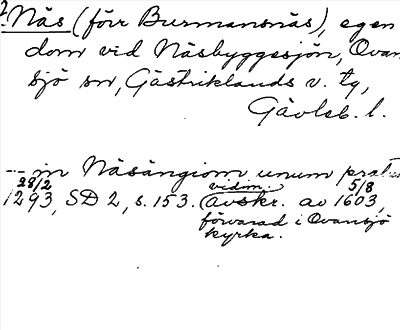 ?.Näs (förr Burmansnäs), egen
dom vid Näsbyggesjön, Ovan
sjö sn, Gästriklands v. tg,
Gävleb. l.
-- in Näsängiom unum prat
28/2 vidim. 5/8
1293, SD 2, s. 153. avskr. av 1603,
förvarad i Ovansjö
kyrka.